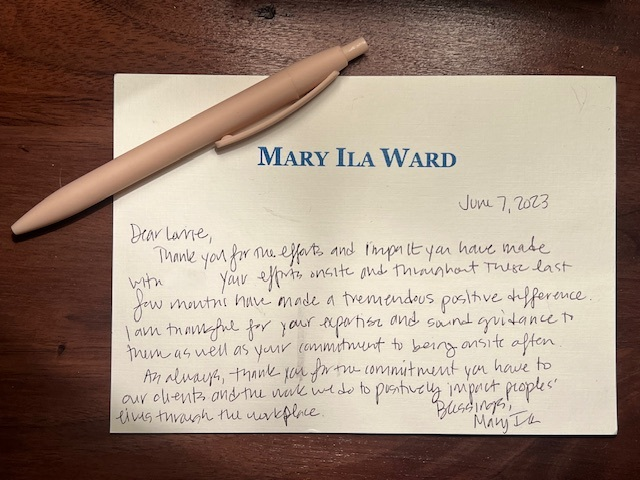 MARY ILA WARD
June 7, 2023
Dear Lorrie,
Thank you for the efforts and impact you have made
with your efforts onsite and throughout these last
few months have made a tremendous positive difference.
I am thankful for your expertise and sound guidance to
them as well as your commitment to being onsite often.
As always, thank you for the commitment you have to
our clients and the work we do to positively impact peoples'
lives through the workplace.
Blessings,
Mary Ila